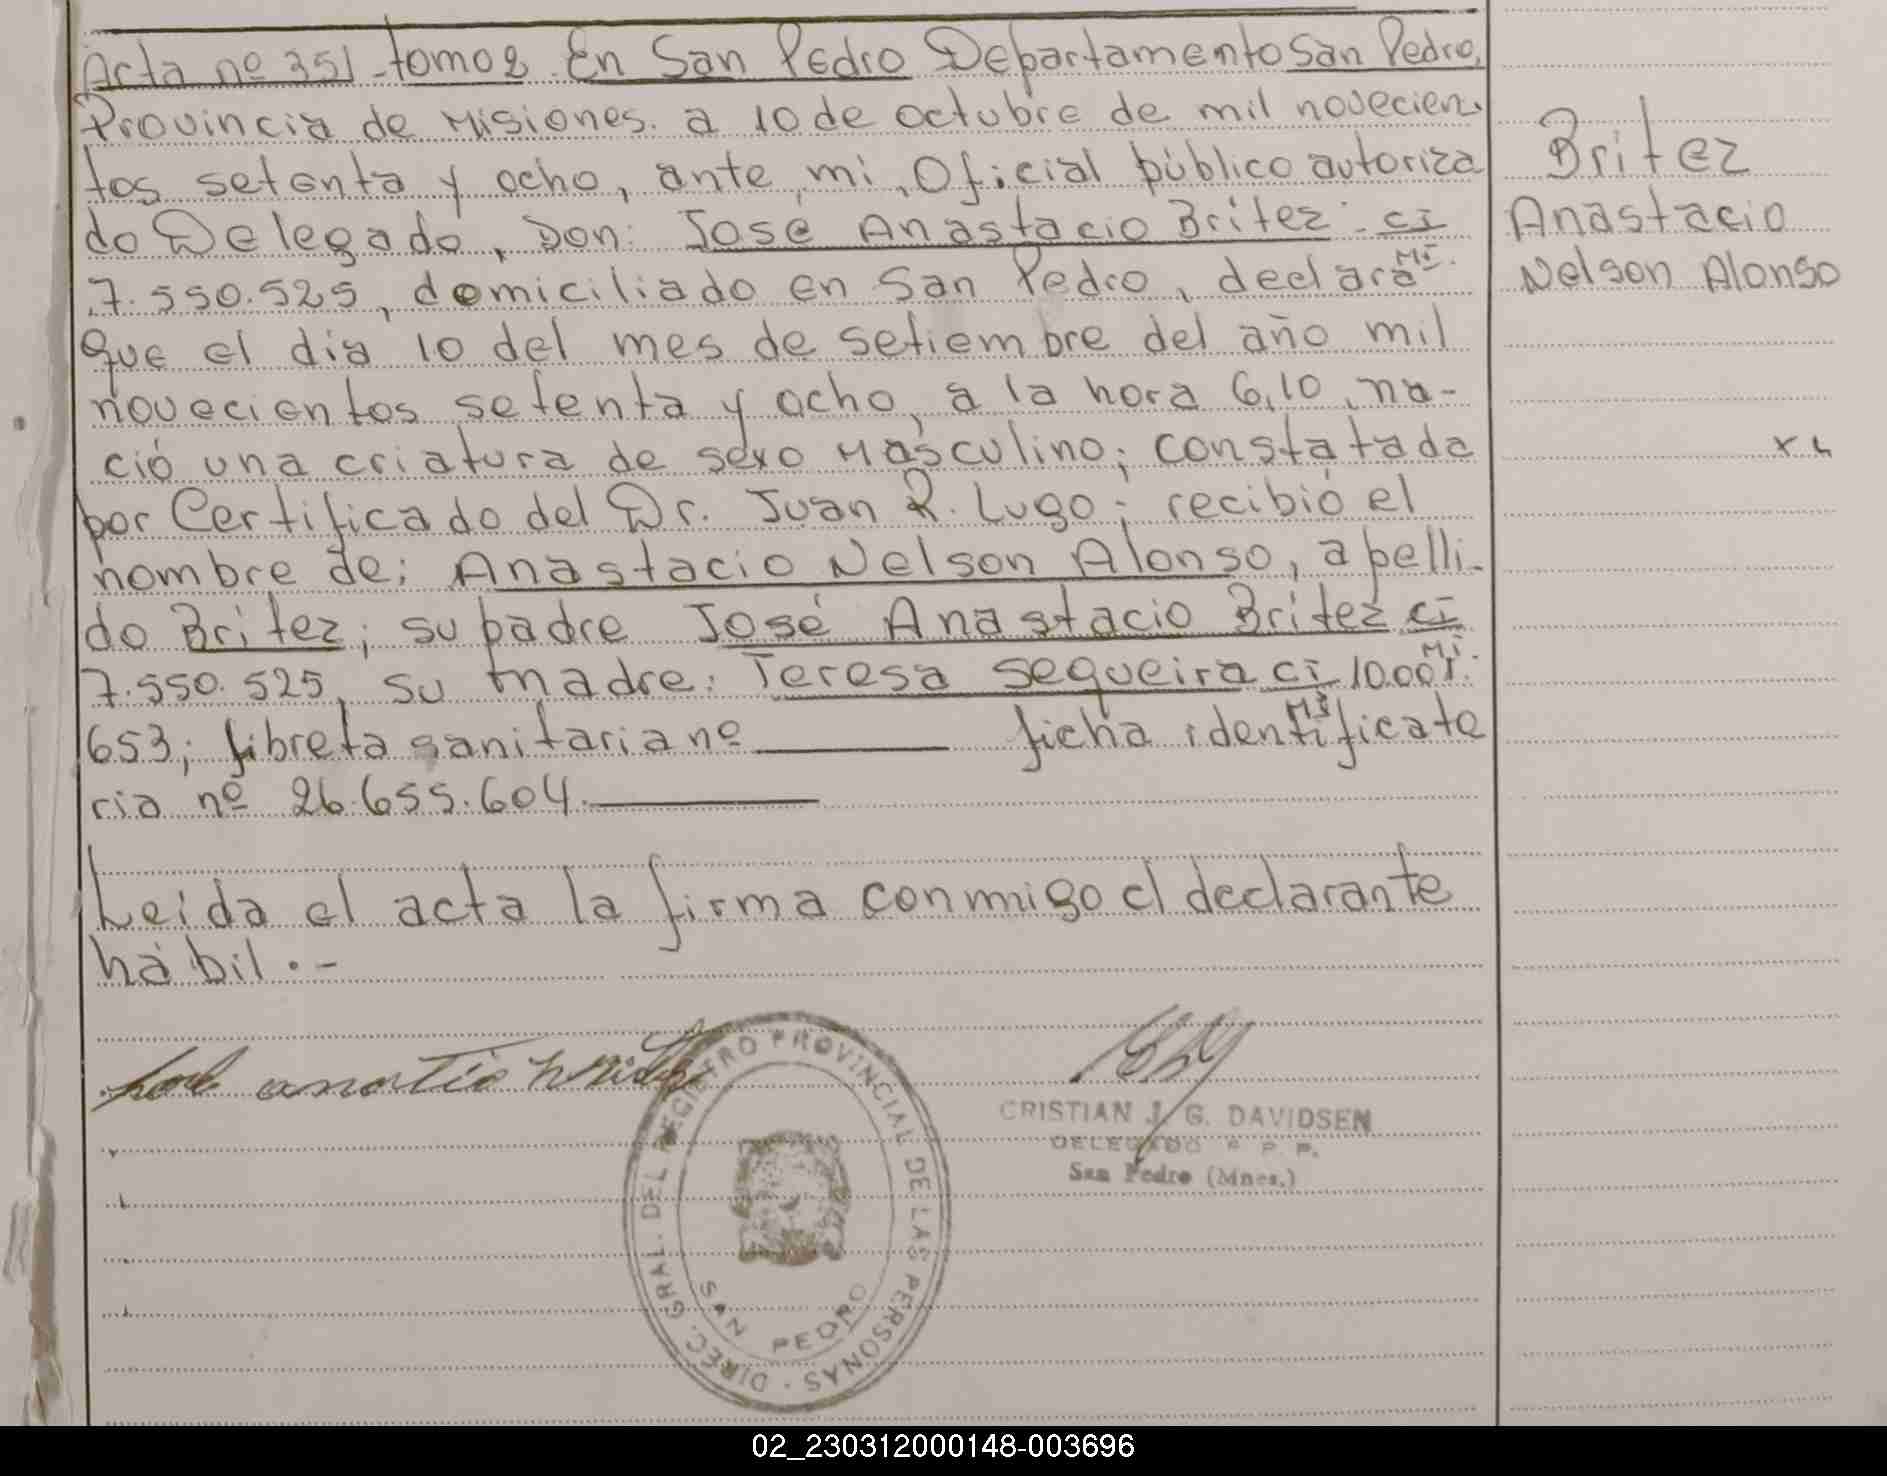 Acta nº 351 - tomo 2 En San Pedro Departamento San Pedro,
Provincia de Misiones. a 10 de octubre de mil novecien
tos setenta y ocho, ante, mi, Oficial público autoriza
do Delegado, Don: José Anastacio Britez - CI
MI.
7.550.525, domiciliado en San Pedro, declara
que el dia 10 del mes de setiembre del año mil
novecientos setenta y ocho, a la hora 6,10, na-
ció una criatura de sexo Masculino; constatada
por Certificado del Dr. Juan R. Lugo; recibió el
nombre de; Anastacio Nelson Alonso, apelli-
do Britez; su padre José Anastacio Britez CI
MI.
7.550.525, su madre: Teresa Sequeira CI 10.001.
MI
653; libreta sanitaria nº ficha identificato
ria nº 26.655.604.
Leida el acta la firma conmigo el declarante
hábil.-
Britez
Anastacio
Nelson Alonso
CRISTIAN J. G. DAVIDSEN
DELEGADO R. P. P.
San Pedro (Mnes.)
DIREC. GRAL. DEL REGISTRO PROVINCIAL DE LAS PERSONAS
SAN PEDRO
02_230312000148-003696